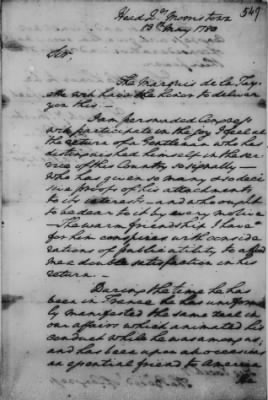 549
Head Qrs Morristown
13th May 1780
Sir,
The Marquis de la Fay-
ette will have the honor to deliver
you this. —
I am persuaded Congress
will participate in the joy I feel at
the return of a Gentleman who has
distinguished himself in the ser-
vice of this Country so signally —
who has given so many and deci-
sive proofs of his attachment
to its interests — and who ought
to be dear to it by every motive
— The warm friendship I have
for him conspires with conside
rations of public utility to afford
me a double satisfaction in his
return. —
During the time he has
been in France he has uniform
ly manifested the same zeal in
our affairs which animated his
conduct while he was among us;
and has been upon all occasions
an essential friend to America